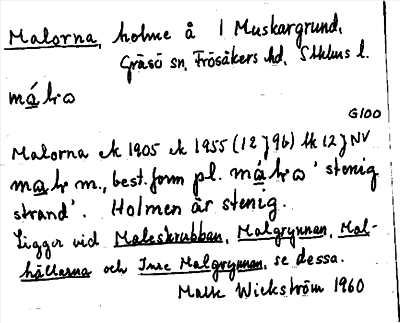 Malorna, holme å I Muskargrund.
Gräsö sn, Frösåkers hd, Sthlms l.
G100
Malorna ek 1905 ek 1955 (12 J 9b) tk 12 J NV
m., best. form pl. 'stenig
strand'. Holmen är stenig.
Ligger vid Maleskrubban, Malgrynnan, Mal-
hällarna och Inre Malgrynnan, se dessa.
Matts Wickström 1960